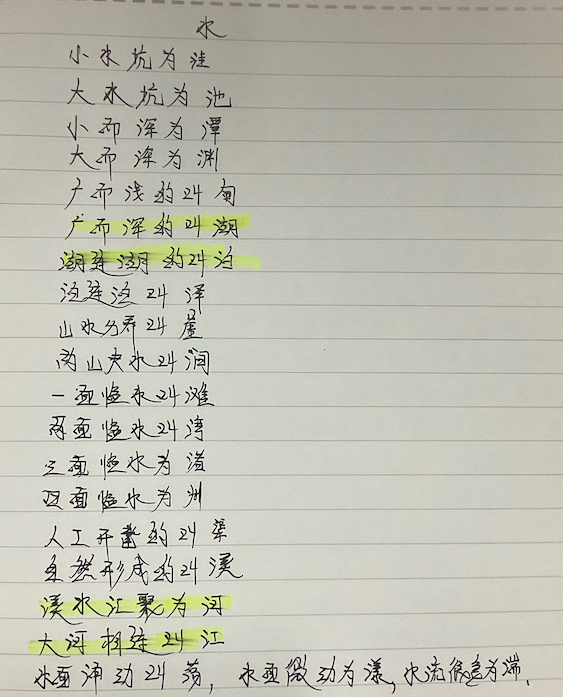 水
小水坑为洼
大水坑为池
小而深为潭
大而深为渊
广而浅的叫甸
广而深的叫湖
湖连湖的叫泊
泊连泊叫泽
山水分界叫崖
两山夹水叫涧
一面临水叫滩
两面临水叫湾
三面临水为渚
四面临水为洲
人工开凿的叫渠
自然形成的叫溪
溪水汇聚为河
大河相连叫江
水面涌动叫荡,水面微动为漾,水流很急为湍.